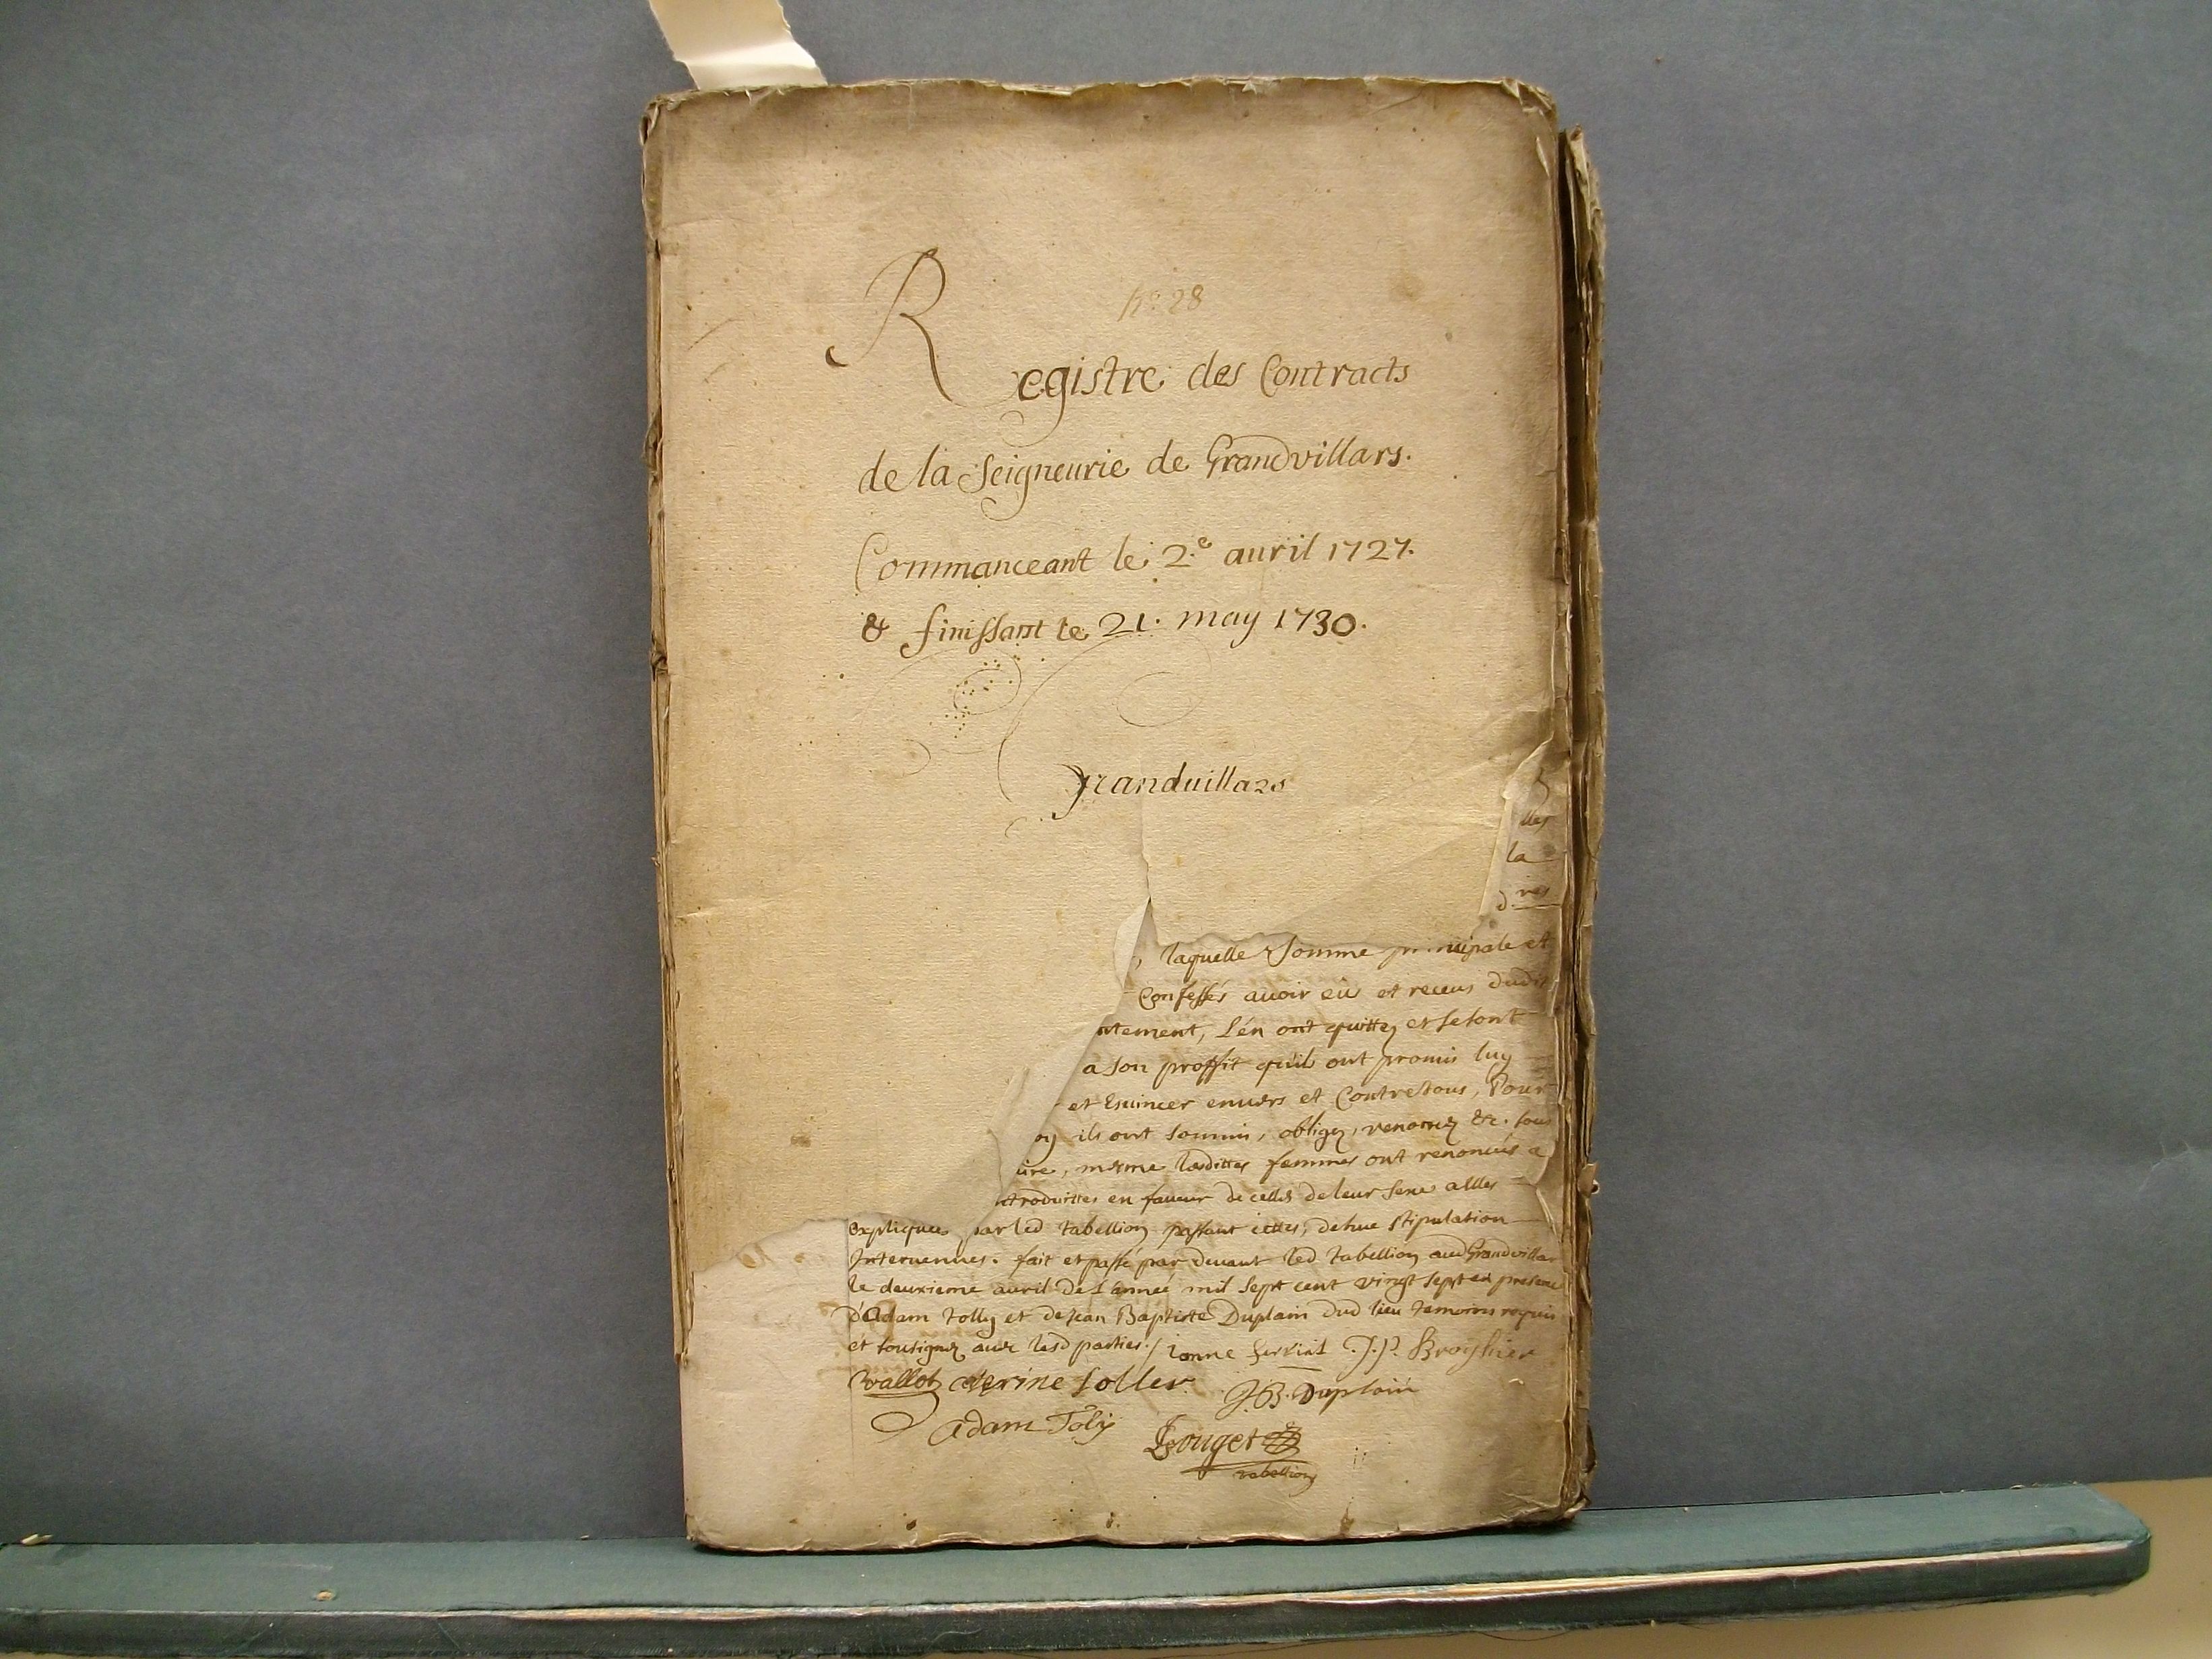 No. 28
Registre des Contracts
de la Seigneurie de Grandvillars.
Commanceant le 2.e auril 1727.
& finissant le 21. may 1730.
Granduillars
lles
la
d. res
laquelle Somme principale et
Confessés auoir eüs et receus dudit
ntement, L'en ont quittez et se sont
a son proffit qu'il ont promis luy
et Esuincer enuers et Contre tous, Pour
oy ils ont soumis, obligez, renoncez &c. sous
ire, mesme lesdittes femmes ont renoncés a
ntroduittes en faueur de celles de leur sexe a elles
Expliquees par led tabellion passant icelles, dehue stipulation
Interuennes. fait et passé par deuant led tabellion aud Grandvillar
le deuxieme auril de L'année mil sept cent vingt sept en presence
D'Adam tolly et de Jean Baptiste Duplain dud lieu temoins requis
et sousignez auec lesd parties./ J.P.
vallot Soller J.B. Duplain
adam Toly
tabellion